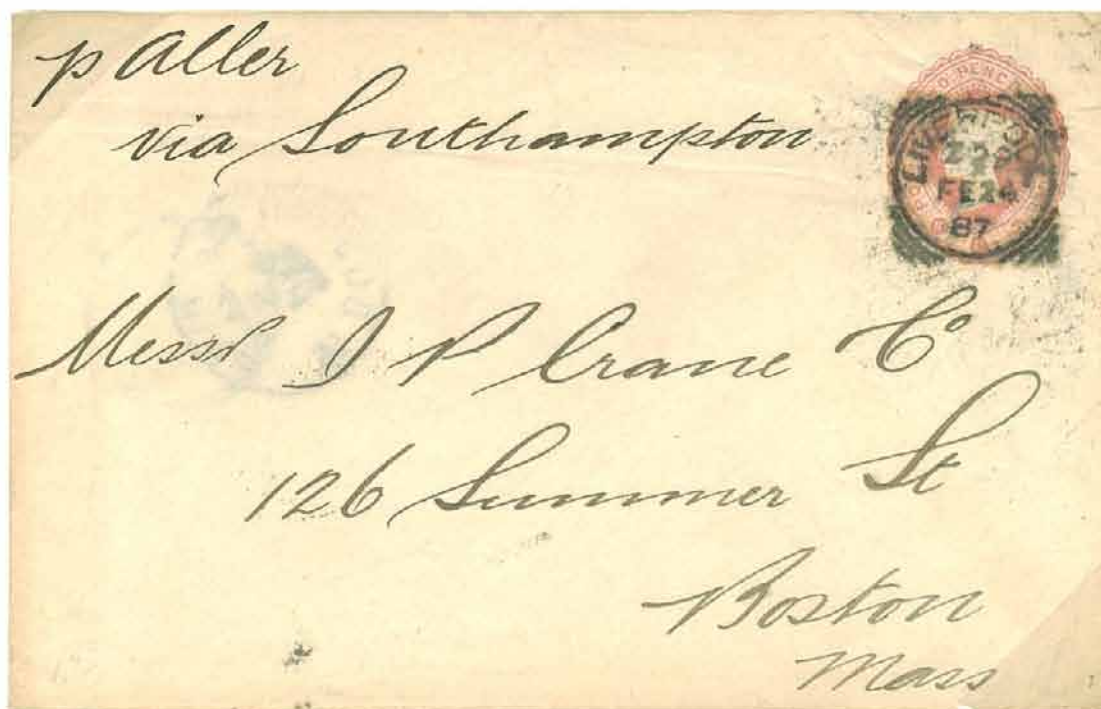 p Aller
via Southampton
PENC
LIVERPOOL
FE 24
87
Messrs J P Crane Co
126 Summer St
Boston
Mass